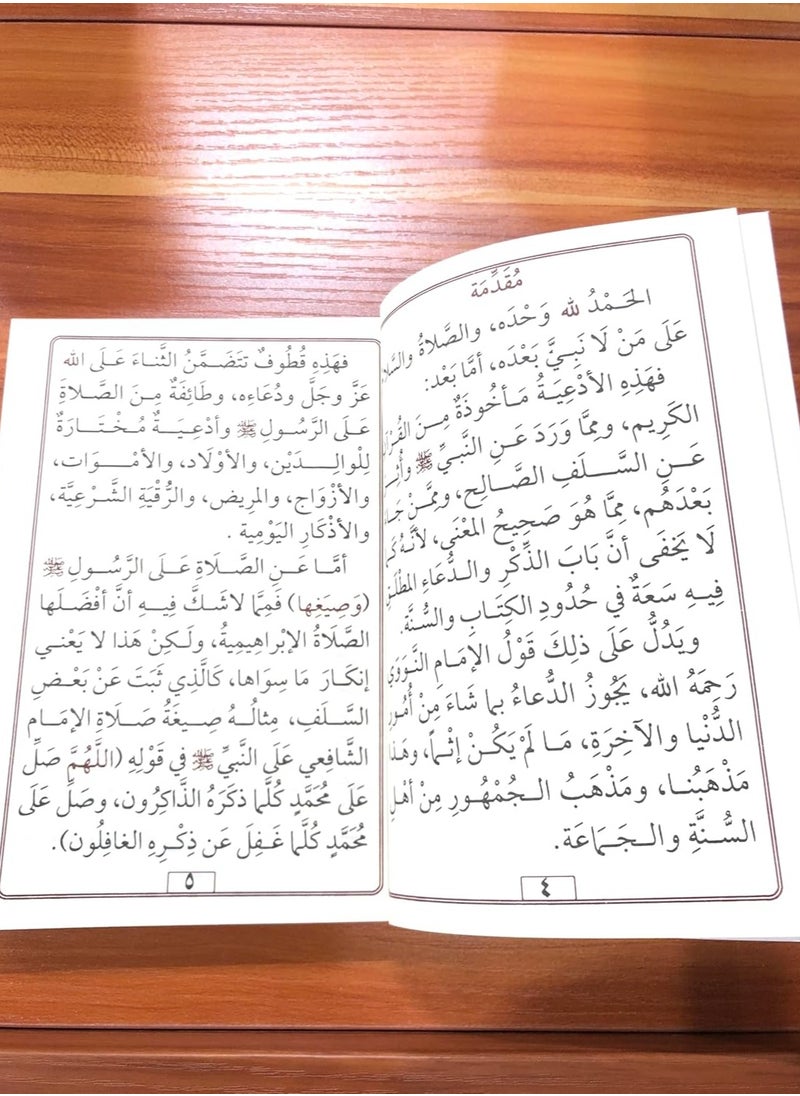 مُقَدِّمَة
الحَمْدُ لله وَحْدَه، والصَّلاةُ والسَّلا
عَلَى مَنْ لَا نَبِيَّ بَعْدَه، أمَّا بَعْد:
فَهَذِهِ الأَدْعِيَةُ مَأخُوذَةٌ مِنَ القُرْآ
الكَرِيم، ومِمَّا وَرَدَ عَنِ النَّبِيِّ ﷺ وأُثِرَ
عَنِ السَّلَفِ الصَّالِح، ومِمَّنْ جَا
بَعْدَهُم، مِمَّا هُوَ صَحِيحُ المَعْنَى، لأنَّهُ كَمَا
لَا يَخْفَى أنَّ بَابَ الذِّكْرِ والدُّعَاءِ المُطْلَقِ
فِيهِ سَعَةٌ في حُدُودِ الكِتَابِ والسُّنَّة.
ويَدُلُّ عَلَى ذلِكَ قَوْلُ الإمَامِ النَّوَوِي
رَحِمَهُ الله، يَجُوزُ الدُّعَاءُ بما شَاءَ مِنْ أُمُورِ
الدُّنْيا والآخِرَةِ، مَا لَمْ يَكُنْ إثْماً، وهَذَا
مَذْهَبُنا، ومَذْهَبُ الجُمْهُورِ مِنْ أهْلِ
السُّنَّةِ والجَمَاعَة.
٤
فهَذِهِ قُطُوفٌ تتَضَمَّنُ الثَّناءَ عَلَى الله
عَزَّ وجَلَّ ودُعَاءِه، وطَائِفَةٌ مِنَ الصَّلاةِ
عَلَى الرَّسُولِ ﷺ وأدْعِيَةٌ مُخْتَارَةٌ
لِلْوالِدَيْن، والأوْلَاد، والأمْوَات،
والأزْوَاج، والمريض، والرُّقْيَةِ الشَّرْعِيَّة،
والأذْكَارِ اليَوْمِية .
أمَّا عَنِ الصَّلَاةِ عَلَى الرَّسُولِ ﷺ
(وَصِيَغِها) فَمِمَّا لاشَكَّ فِيهِ أنَّ أفْضَلَها
الصَّلاةُ الإبْراهِيمِيةُ، ولَكِنْ هَذا لا يَعْنِي
إنكَارَ مَا سِوَاها، كَالَّذِي ثَبَتَ عَنْ بَعْضِ
السَّلَفِ، مِثالُهُ صِيغَةُ صَلَاةِ الإمَامِ
الشَّافِعي عَلَى النَّبيِّ ﷺ في قَوْلِهِ (اللَّهُمَّ صَلِّ
عَلَى مُحَمَّدٍ كُلَّما ذكَرَهُ الذَّاكِرُون، وصَلِّ عَلَى
مُحَمَّدٍ كُلَّما غَفِلَ عَن ذِكْرِهِ الغافِلُون).
٥